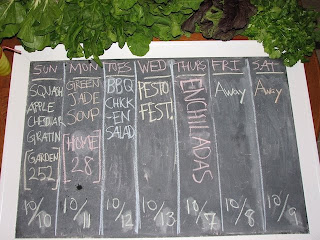 SUN MON TUES WED THURS FRI SAT
SQUASH
APPLE
CHEDDAR
GRATIN
[GARDEN
252]
10/10
GREEN
JADE
SOUP
[HOME
28]
10/11
BBQ
CHICK
-EN
SALAD
10/12
PESTO
FEST!
10/13
ENCHILADAS
10/7
AWAY
10/8
AWAY
10/9